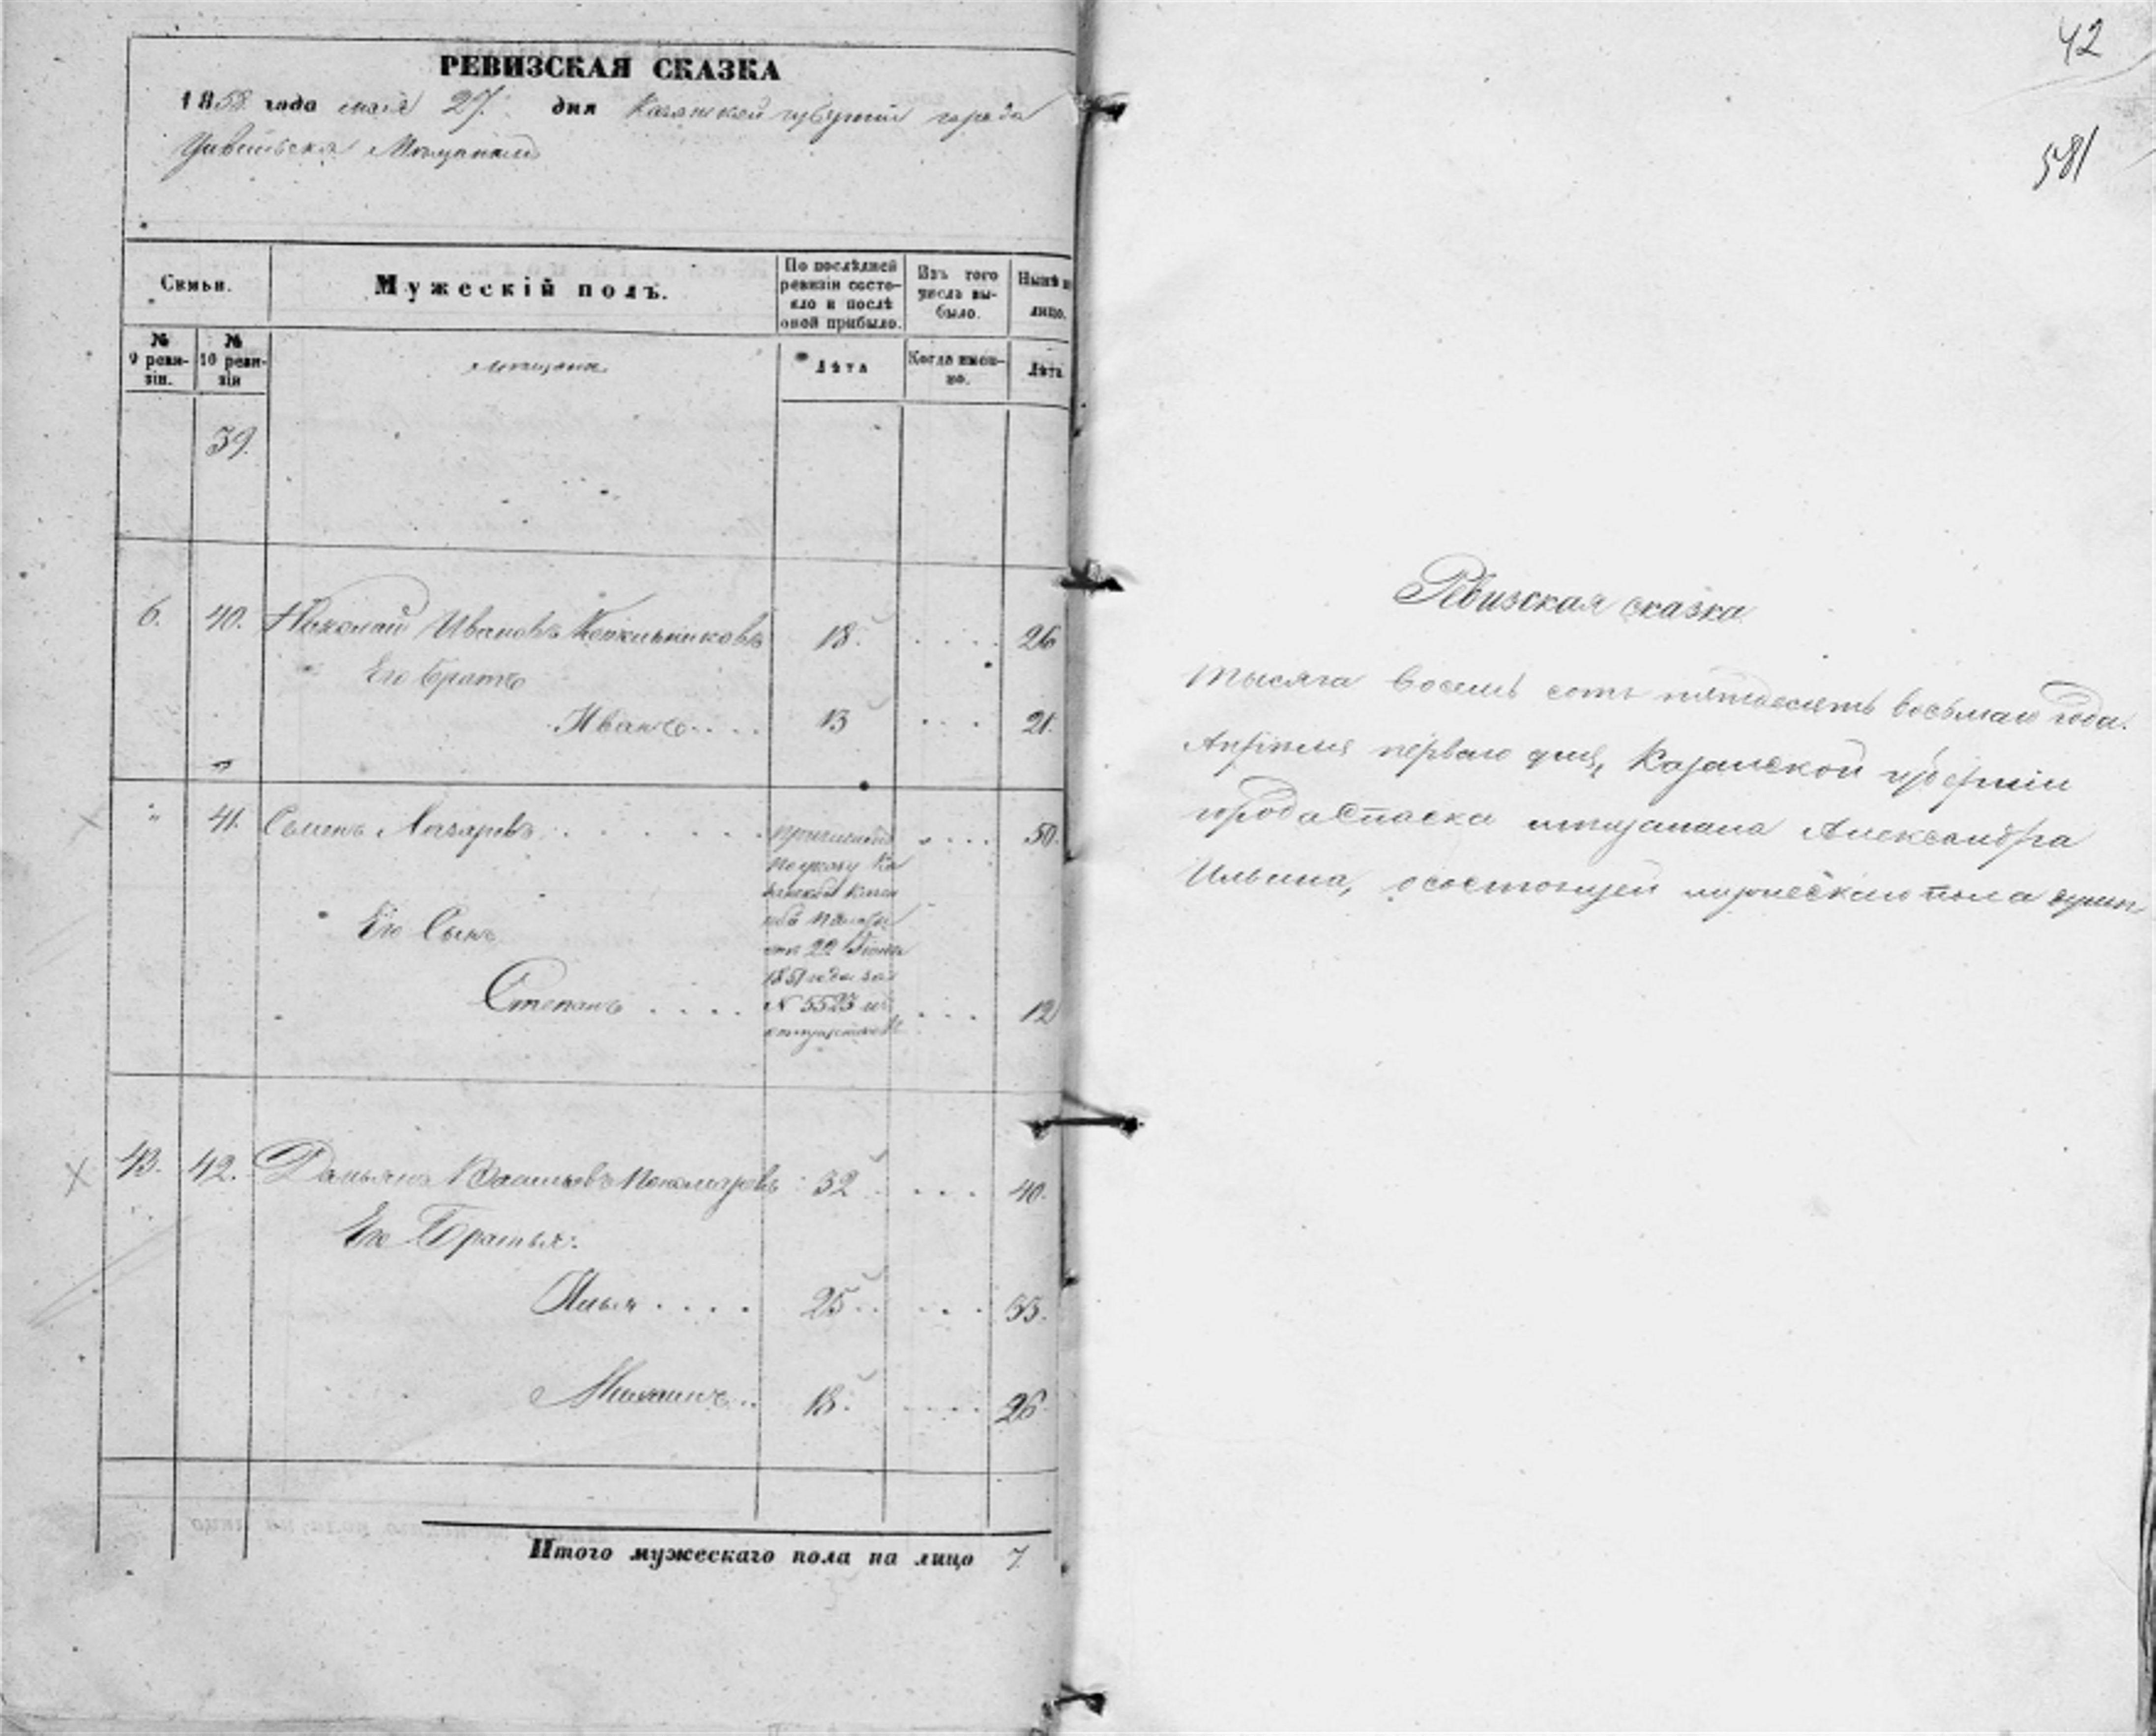 РЕВИЗСКАЯ СКАЗКА
1858 года мая 27. дня Казанской губернiи города
Цивильска Мѣщанамъ
Семьи.
Мужескiй полъ.
По послѣдней ревизiи состояло и послѣ оной прибыло.
Изъ того числа выбыло.
Нынѣ на лицо.
№ 9 ревизiи.
№ 10 ревизiи
мѣщане
Лѣта
Когда именно.
Лѣта
39.
6. 40. Николай Ивановъ 18. .... 26
Его братъ
Иванъ.... 13 ... 21.
" 41. Семенъ Лазаревъ. ...... .... 50.
причисленъ
по указу Ка
занской Казен
ной Палаты
отъ 22 Iюня
1851 года за
№ 5523 из
Его Сынъ
Степанъ .... ... 12
43. 42. Демьянъ Васильевъ Пономаревъ 32 .... 40.
Его Братья:
Илья .... 25.. ... 33.
Михаилъ.. 18. .... 26
Итого мужескаго пола на лицо 7.
42
581
Ревизская сказка
Тысяча восемь сотъ пятьдесятъ восьмаго года.
Апрѣля перваго дня, Казанской губернiи
города Спаска мѣщанина Александра
Ильина, о состоящей мужескаго пола души